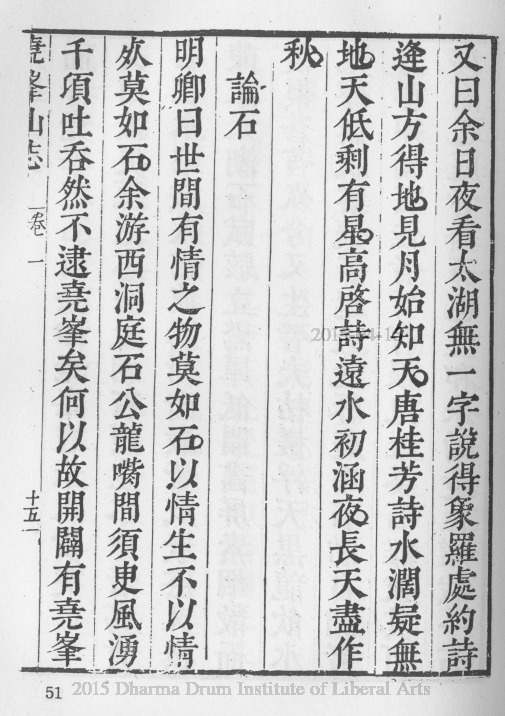 又曰余日夜看太湖無一字說得象羅處約詩
逢山方得地見月始知天唐桂芳詩水濶疑無
地天低剩有星高啓詩遠水初涵夜長天盡作
秋
論石
明卿曰世間有情之物莫如石以情生不以情
死莫如石余游西洞庭石公龍嘴間須臾風湧
千頃吐吞然不逮堯峯矣何以故開闢有堯峯
堯峯山志
卷一
十五
51
2015 Dharma Drum Institute of Liberal Arts